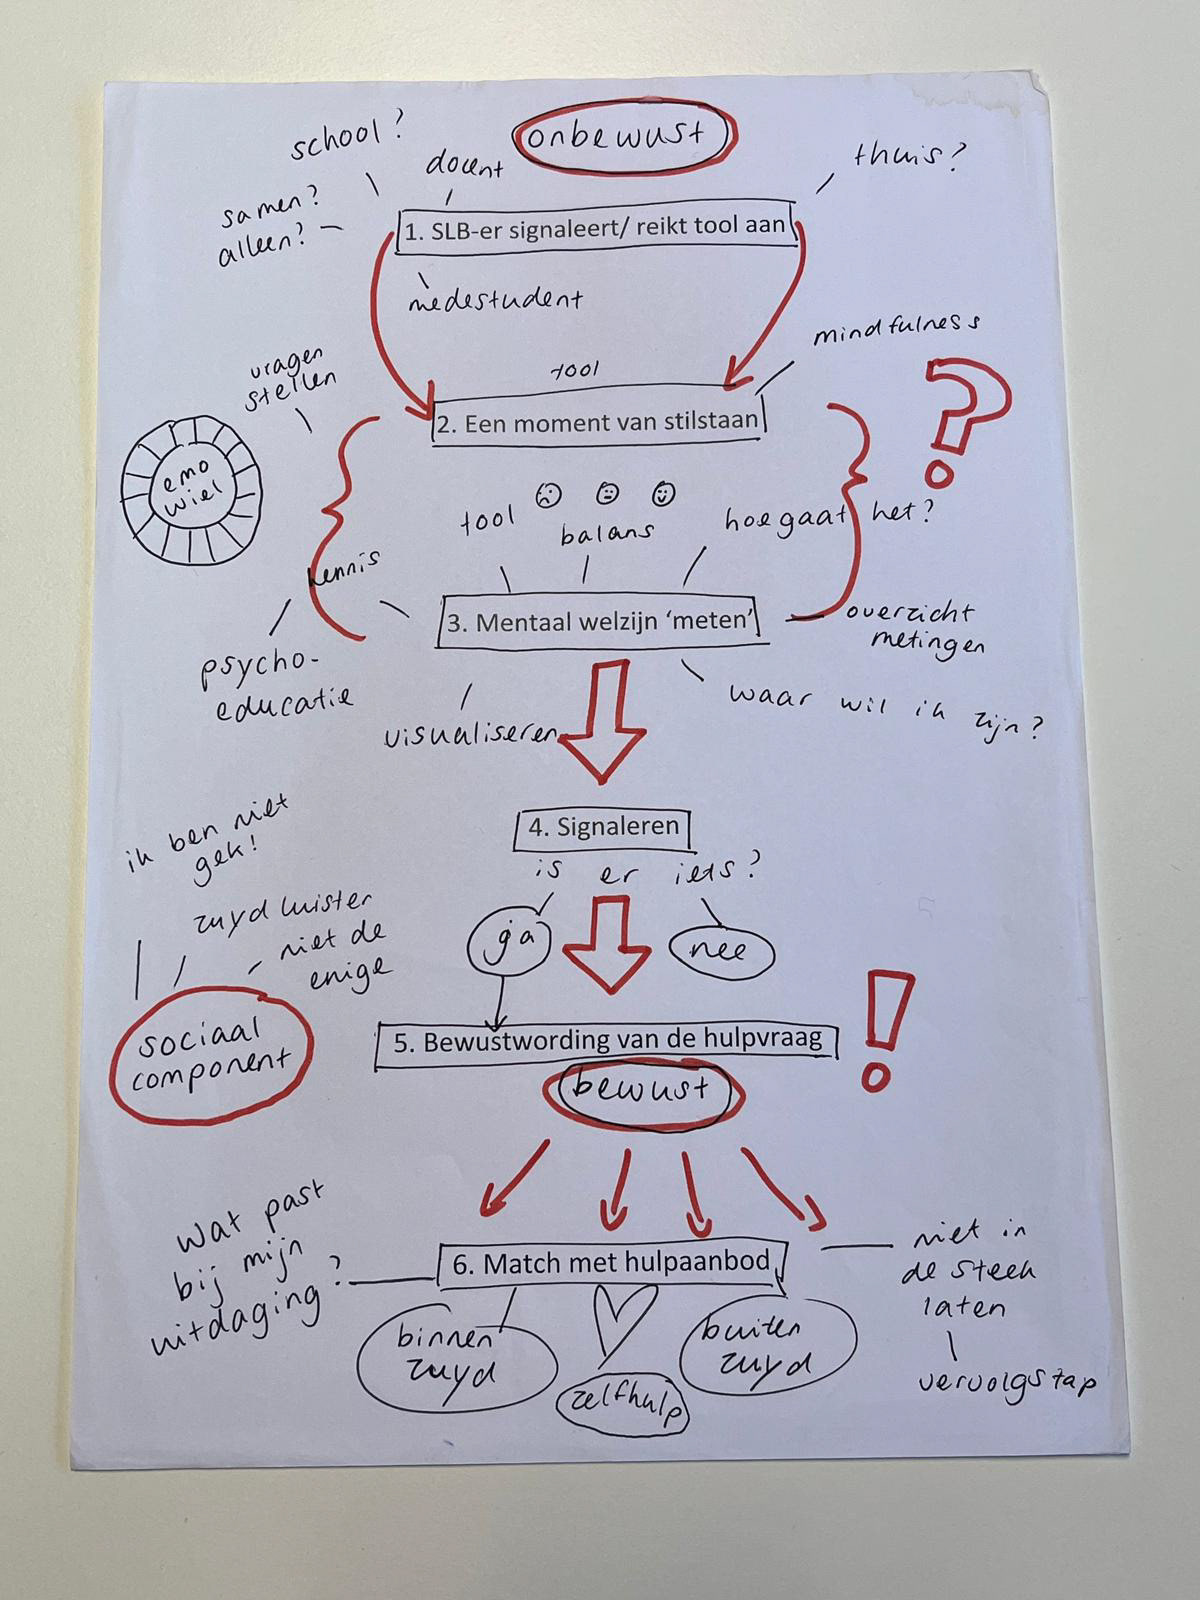 onbewust
school?
docent
thuis?
samen?
alleen?
1. SLB-er signaleert/ reikt tool aan
medestudent
mindfulness
vragen
stellen
tool
2. Een moment van stilstaan
?
emo
wiel
tool
balans
hoe gaat het?
kennis
3. Mentaal welzijn ‘meten’
overzicht
metingen
psycho-
educatie
visualiseren
waar wil ik zijn?
4. Signaleren
is er iets?
ja
nee
ik ben niet
gek!
zuyd luister
niet de
enige
sociaal
component
5. Bewustwording van de hulpvraag
!
bewust
wat past
bij mijn
uitdaging?
6. Match met hulpaanbod
niet in
de steek
laten
vervolgstap
binnen
zuyd
zelfhulp
buiten
zuyd